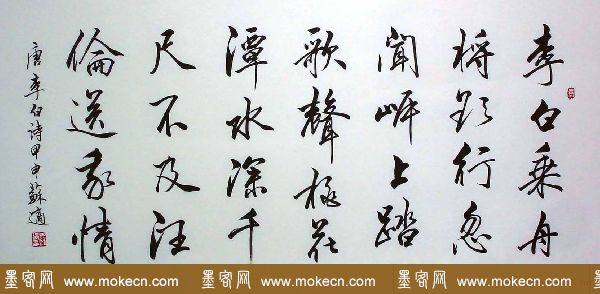 李白乘舟
将欲行忽
聞岸上踏
歌聲桃花
潭水深千
尺不及汪
倫送我情
唐李白诗甲申蘇
墨客网 www.mokecn.com 墨客网 www.mokecn.com 墨客网 www.mokecn.com